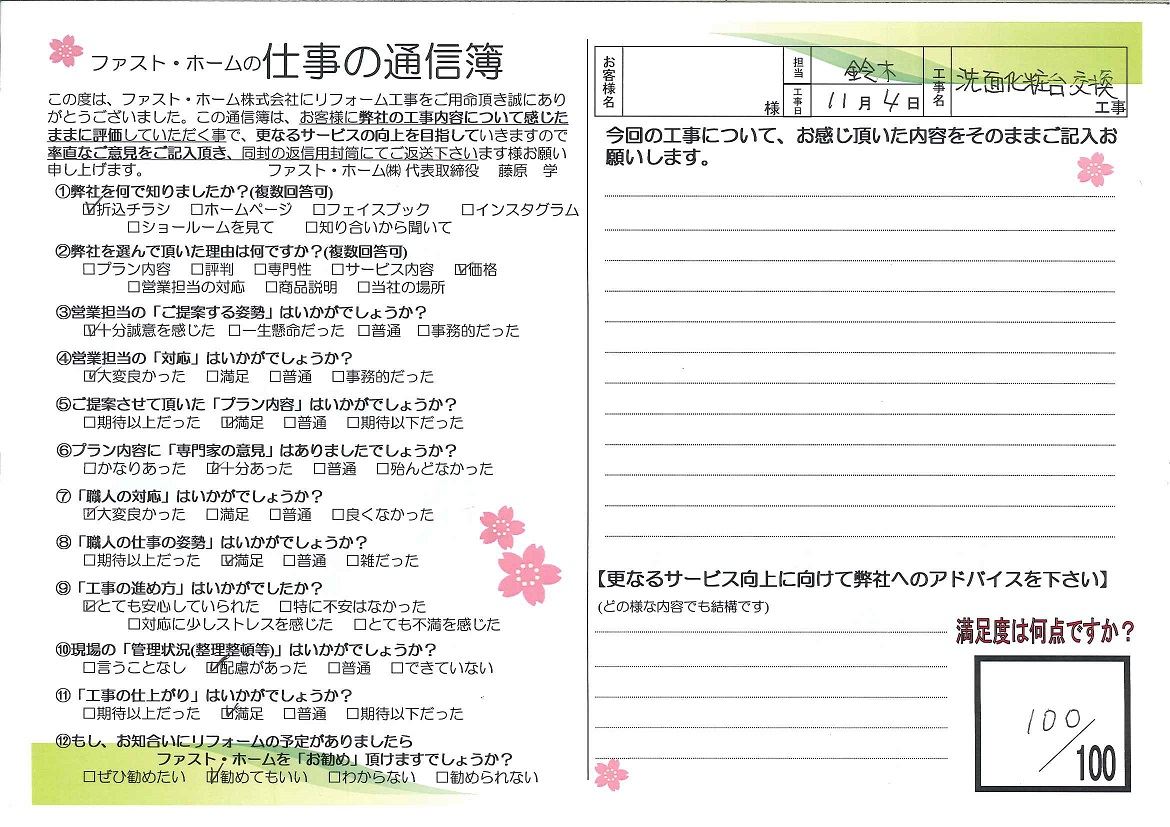 ファスト・ホームの仕事の通信簿
この度は、ファスト・ホーム株式会社にリフォーム工事をご用命頂き誠にあり
がとうございました。この通信簿は、お客様に弊社の工事内容について感じた
ままに評価していただく事で、更なるサービスの向上を目指していきますので
率直なご意見をご記入頂き、同封の返信用封筒にてご返送下さいます様お願い
申し上げます。 ファスト・ホーム㈱ 代表取締役 藤原 学
①弊社を何で知りましたか？(複数回答可)
☑折込チラシ □ホームページ □フェイスブック □インスタグラム
□ショールームを見て □知り合いから聞いて
②弊社を選んで頂いた理由は何ですか？(複数回答可)
□プラン内容 □評判 □専門性 □サービス内容 ☑価格
□営業担当の対応 □商品説明 □当社の場所
③営業担当の「ご提案する姿勢」はいかがでしょうか？
☑十分誠意を感じた □一生懸命だった □普通 □事務的だった
④営業担当の「対応」はいかがでしょうか？
☑大変良かった □満足 □普通 □事務的だった
⑤ご提案させて頂いた「プラン内容」はいかがでしょうか？
□期待以上だった ☑満足 □普通 □期待以下だった
⑥プラン内容に「専門家の意見」はありましたでしょうか？
□かなりあった ☑十分あった □普通 □殆んどなかった
⑦「職人の対応」はいかがでしょうか？
☑大変良かった □満足 □普通 □良くなかった
⑧「職人の仕事の姿勢」はいかがでしょうか？
□期待以上だった ☑満足 □普通 □雑だった
⑨「工事の進め方」はいかがでしたか？
☑とても安心していられた □特に不安はなかった
□対応に少しストレスを感じた □とても不満を感じた
⑩現場の「管理状況(整理整頓等)」はいかがでしょうか？
□言うことなし ☑配慮があった □普通 □できていない
⑪「工事の仕上がり」はいかがでしょうか？
□期待以上だった ☑満足 □普通 □期待以下だった
⑫もし、お知合いにリフォームの予定がありましたら
ファスト・ホームを「お勧め」頂けますでしょうか？
□ぜひ勧めたい ☑勧めてもいい □わからない □勧められない
お客様名 様 担当 鈴木 工事名 洗面化粧台交換 工事
工事日 11月4日
今回の工事について、お感じ頂いた内容をそのままご記入お
願いします。
【更なるサービス向上に向けて弊社へのアドバイスを下さい】
(どの様な内容でも結構です)
満足度は何点ですか？
100/100